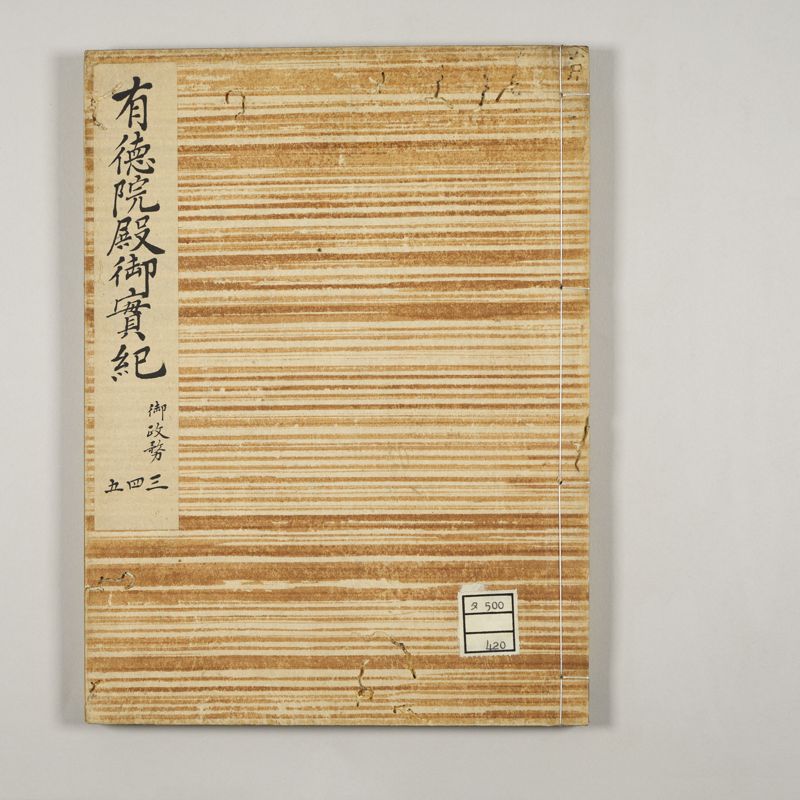 有徳院殿御實紀
御政務
三四五
タ 500
420